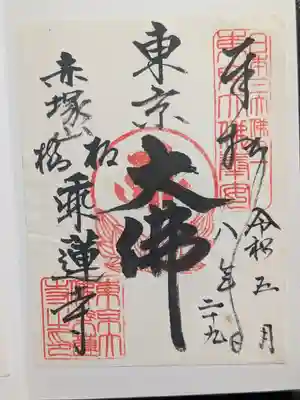 奉拝
令和八年
五月二十九日
東京
大佛
板橋
赤塚
乘蓮寺